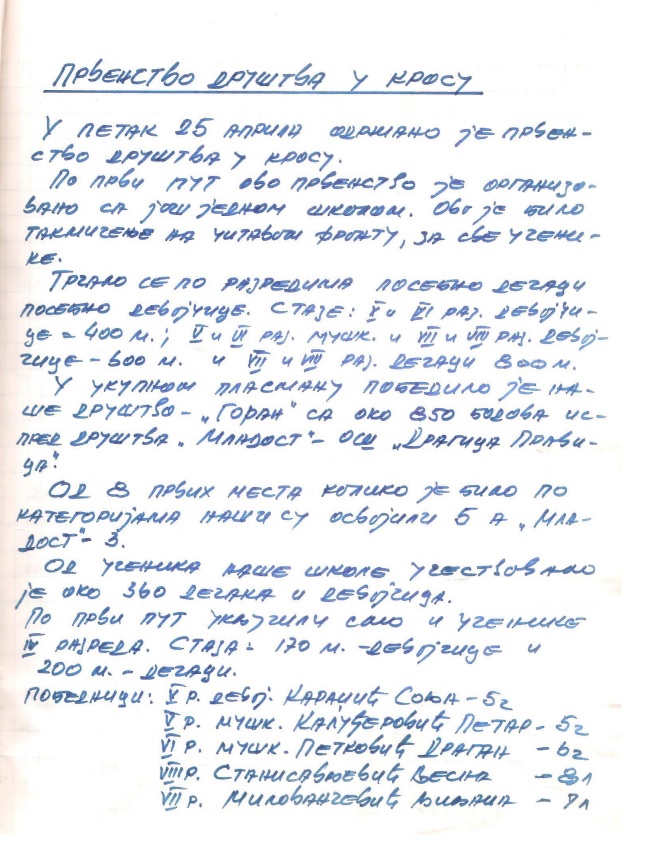 Првенство друштва у кросу
У петак 25 априла одржано је првен-
ство друштва у кросу.
По први пут ово првенство је организо-
вано са још једном школом. Ово је било
такмичење на читавом фронту, за све учени-
ке.
Трчало се по разредима посебно дечаци
посебно девојчице. Стазе: V и VI раз. девојчи-
це = 400 м.; V и VI раз. мушк. и VII и VIII раз. девој-
чице - 600 м. и VII и VIII раз. дечаци 800 м.
У укупном пласману победило је на-
ше друштво - „Горан" са око 850 бодова ис-
пред друштва „Младост" - ОШ „Драгица Прави-
ца".
Од 8 првих места колико је било по
категоријама наши су освојили 5 а „Мла-
дост" - 3.
Од ученика наше школе учествовало
је око 360 дечака и девојчица.
По први пут укључили смо и ученике
IV разреда. Стаза = 170 м. - девојчице и
200 м. - дечаци.
Победници: V р. девој. Каранић Соња - 5г
V р. мушк. Калуђеровић Петар - 5г
VI р. мушк. Петковић Драган - 6г
VIII р. Станисављевић Весна - 8л
VII р. Миловančевић Љиљана